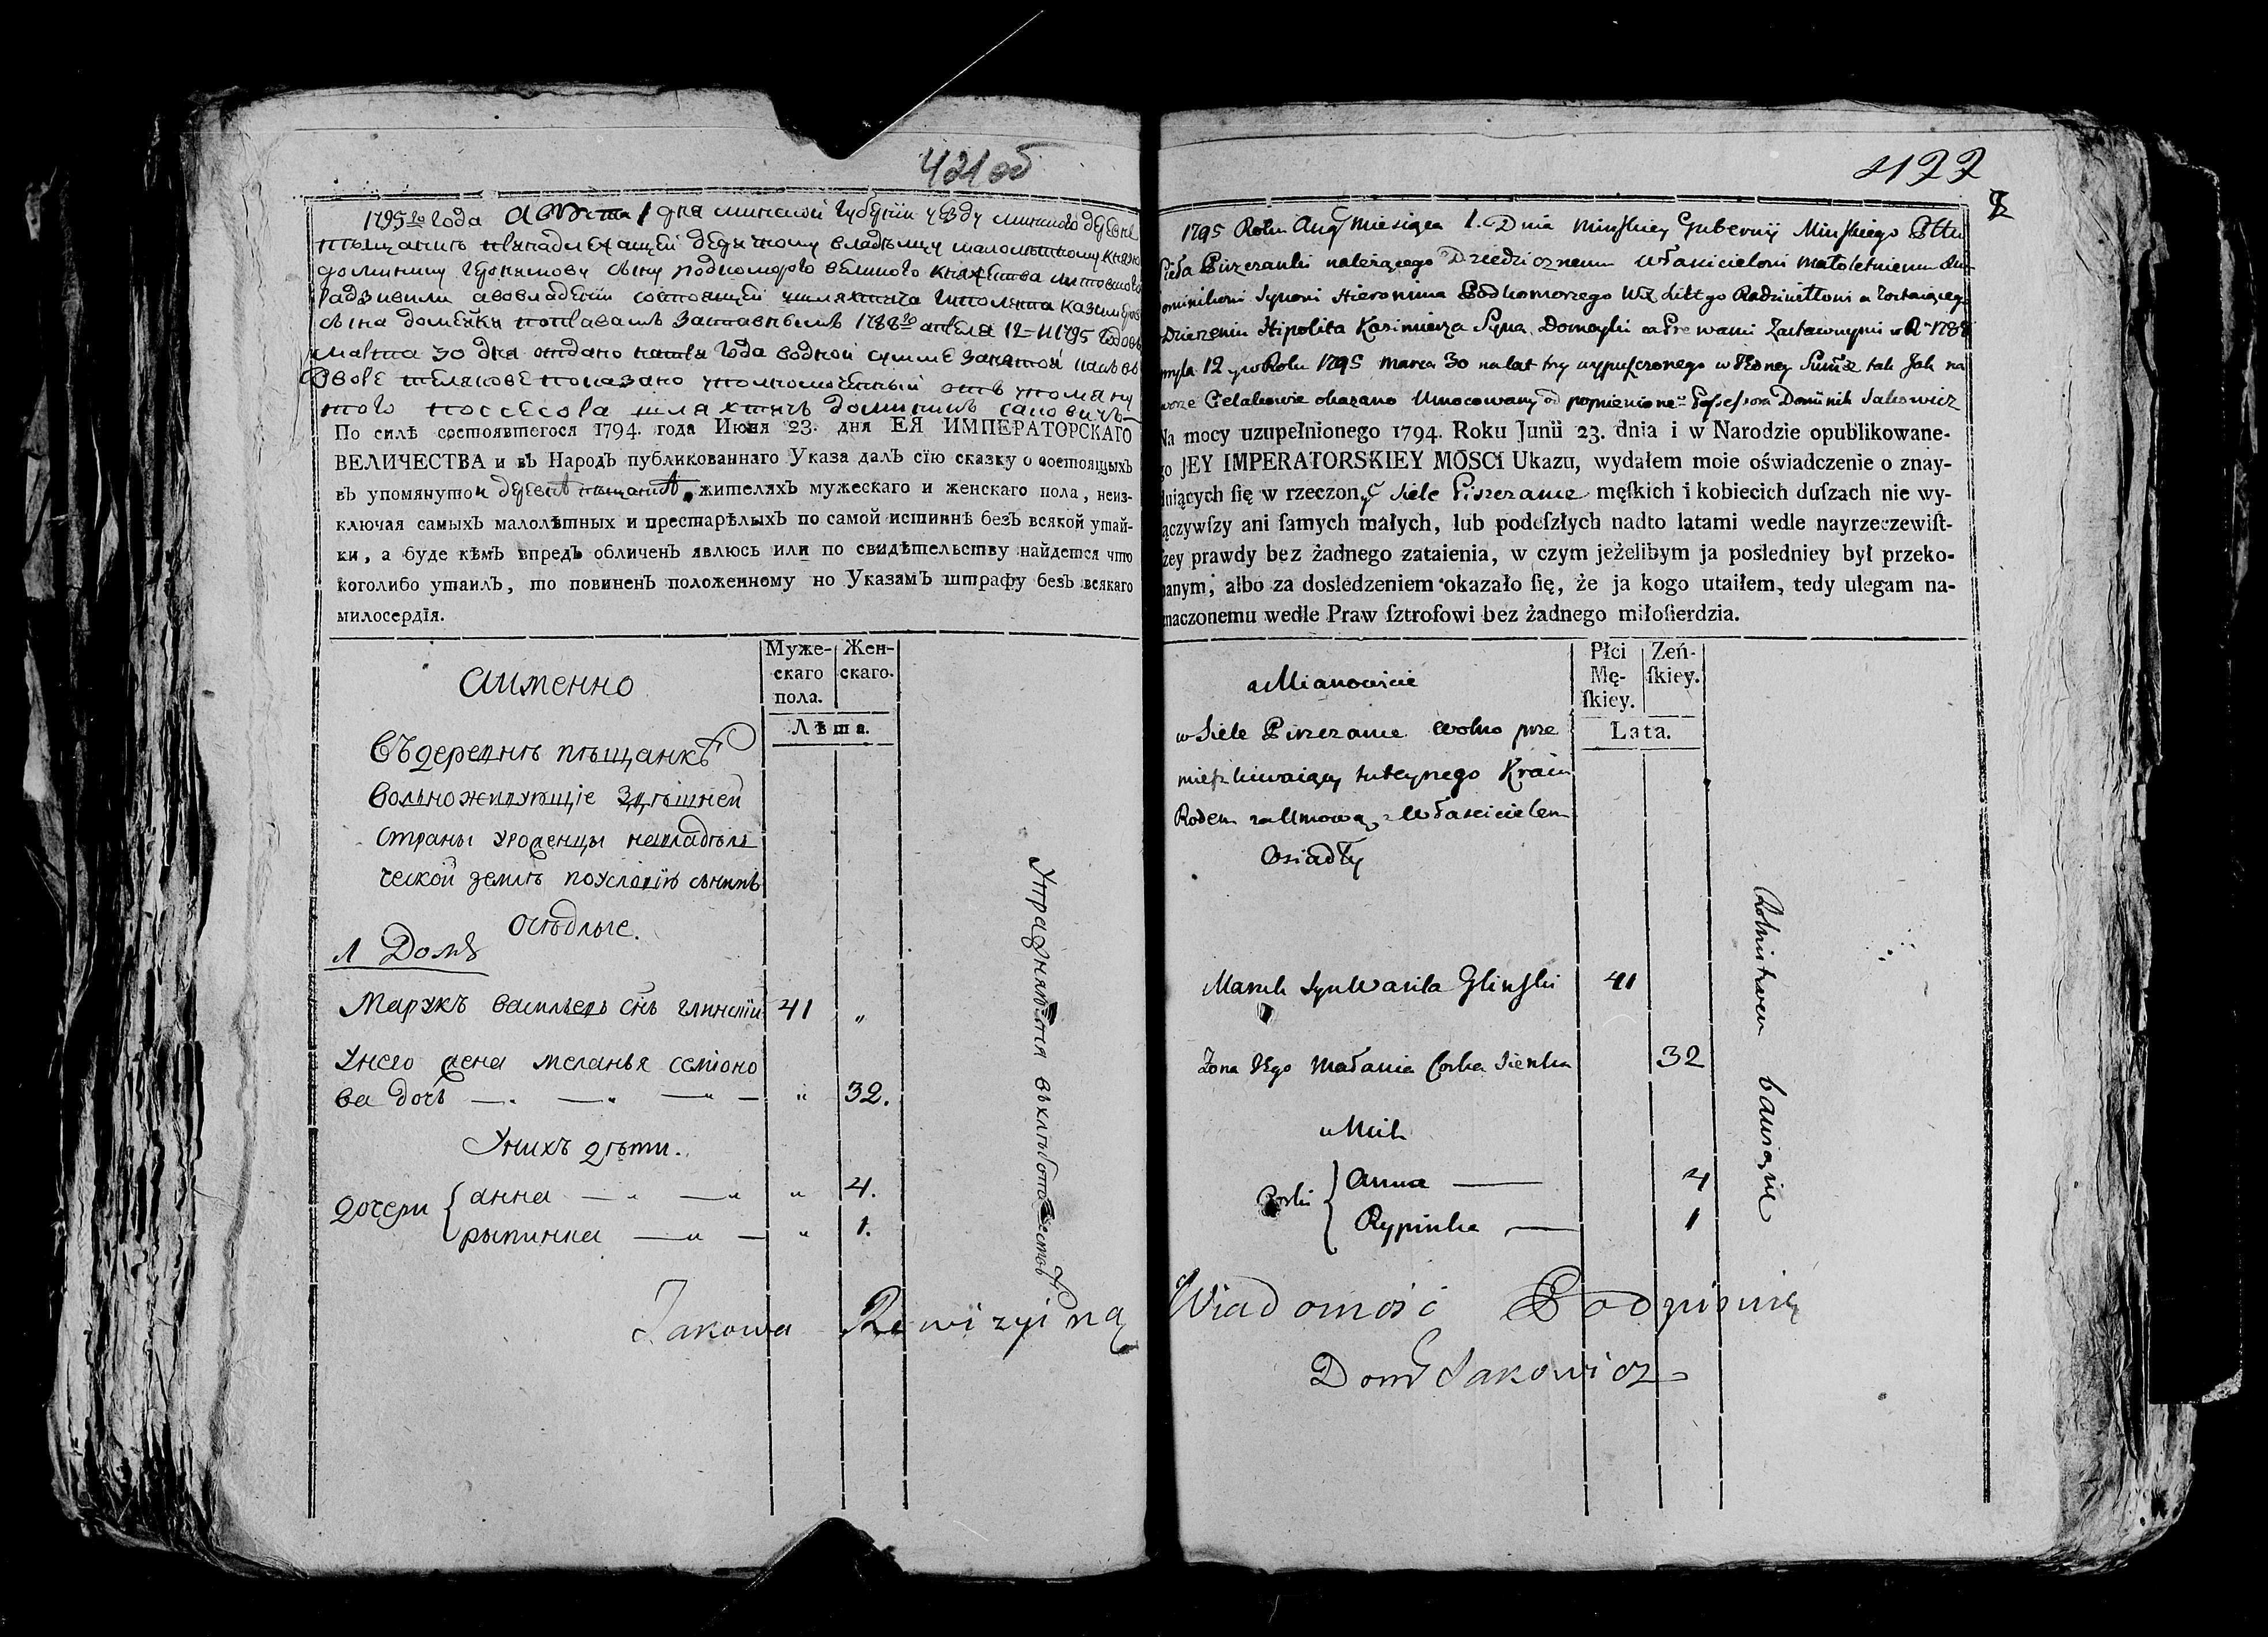 421об
1795го года августа 1 дня минской губернии уезду минского деревне
пѣщанкѣ принадлежащей дедичному владѣльцу малолѣтному князю
доминику геронимову сыну подкоморого великого княжества литовского
радзивилу авовладении состоящей шляхтича ипполита казимеров
сына домейки поправамъ заставнымъ 1788го апреля 12 и 1795 годовъ
марта 30 дня отдано натри года водной сумме занятой какъ въ
дворе целякове показано уполномоченный отъ упомяну
того поссесора шляхтичъ доминикъ саковичъ
По силѣ состоявшегося 1794. года Июня 23. дня ЕЯ ИМПЕРАТОРСКАГО
ВЕЛИЧЕСТВА и въ Народъ публикованнаго Указа далъ сїю сказку о состоящыхъ
въ упомянутой деревнѣ пѣщанкѣ жителяхъ мужескаго и женскаго пола, неиз-
ключая самыхъ малолѣтныхъ и престарѣлыхъ по самой истиннѣ безъ всякой утай-
ки, а буде кѣмъ впредь обличенъ явлюсь или по свидѣтельству найдется что
коголибо утаилъ, то повиненъ положенному по Указамъ штрафу безъ всякаго
милосердїя.
Аименно
Муже-
скаго
пола.
Жен-
скаго.
Лѣта.
Въ деревнѣ пѣщанкѣ
вольноживущіе здѣшней
страны уроженцы навладѣль
ческой землѣ поусловію снимъ
осѣдлые.
1 Домъ
Маркъ васильевъ снъ глинский 41 „
Унего жена меланья семіоно
ва дочь — „ — „ — „ — „ 32.
Унихъ дѣти.
дочери { анна — „ — „ „ 4.
рыпинка — „ — „ 1.
Упражняется въ хлѣбопашествѣ
422
2
1795 Roku Augst Miesiąca 1. Dnia Minskiey Gubernij Minskiego Pttu
Sieła Piszczanki należącego Dziedzicznemu właścicielowi małoletniemu
Dominikowi Synowi Hieronima Podkomorzego WX Litt go Radziwiłłowi a zostaiącego
Dzierżeniu Hipolita Kazimierza Syna Domeyki za Prawami Zastawnymi w Rku 1788
Apryla 12 y w Roku 1795 Marca 30 na lat try wypuszczonego w Jedney Summie tak Jak na
Dworze Cielakowie okazano Umocowany od pomienionego Possessora Dominik Sakowicz
Na mocy uzupełnionego 1794. Roku Junii 23. dnia i w Narodzie opublikowane-
go JEY IMPERATORSKIEY MOSCI Ukazu, wydałem moie oświadczenie o znay-
duiących ſię w rzeczonym Siele Piszczance męſkich i kobiecich duſzach nie wy-
łączywſzy ani ſamych małych, lub podeſzłych nadto latami wedle nayrzeczewiſt-
ſzey prawdy bez żadnego zataienia, w czym jeżelibym ja posledniey był przeko-
nanym, albo za dosledzeniem okazało ſię, że ja kogo utaiłem, tedy ulegam na-
znaczonemu wedle Praw ſztrofowi bez żadnego miłoſierdzia.
a Mianowicie
Płci
Mę-
ſkiey.
Zeń-
ſkiey.
Lata.
w Siele Piszczance wolno prze
mieszkiwaiący tuteynego Kraiu
Rodem za Umową z Właścicielem
Osiadły
Marek Syn Wasila Glinski 41
Żona Jego Małania Corka Sienka 32
u Nich
Corki { Anna — 4
Rypinka — 1
Rolnictwem bawiąsie
Takowa Rewizyiną Wiadomość Podpisuię
Domk Sakowicz